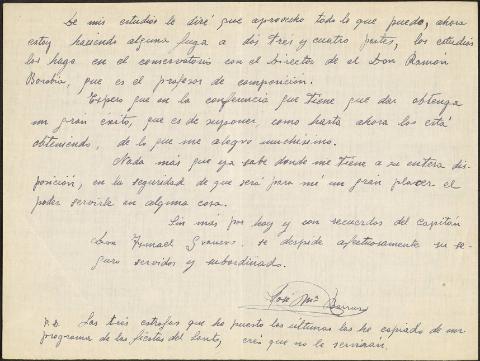 De mis estudios le diré que aprovecho todo lo que puedo, ahora
estoy haciendo alguna fuga a dos tres y cuatro partes, los estudios
los hago en el conservatorio con el Director de el Don Ramón
Borobia, que es el profesor de composición.
Espero que en la conferencia que tiene que dar obtenga
un gran éxito, que es de suponer, como hasta ahora los está
obteniendo, de lo que me alegro muchísimo.
Nada más que ya sabe donde me tiene a su entera dis-
posición, en la seguridad de que será para mí un gran placer el
poder servirle en alguna cosa.
Sin más por hoy y con recuerdos del capitán
Don Ismael se despide afectuosamente su se-
guro servidor y subordinado.
José Mª
P.D. Las tres estrofas que he puesto las últimas las he copiado de un
programa de las fiestas del Santo, creo que no le servirán.